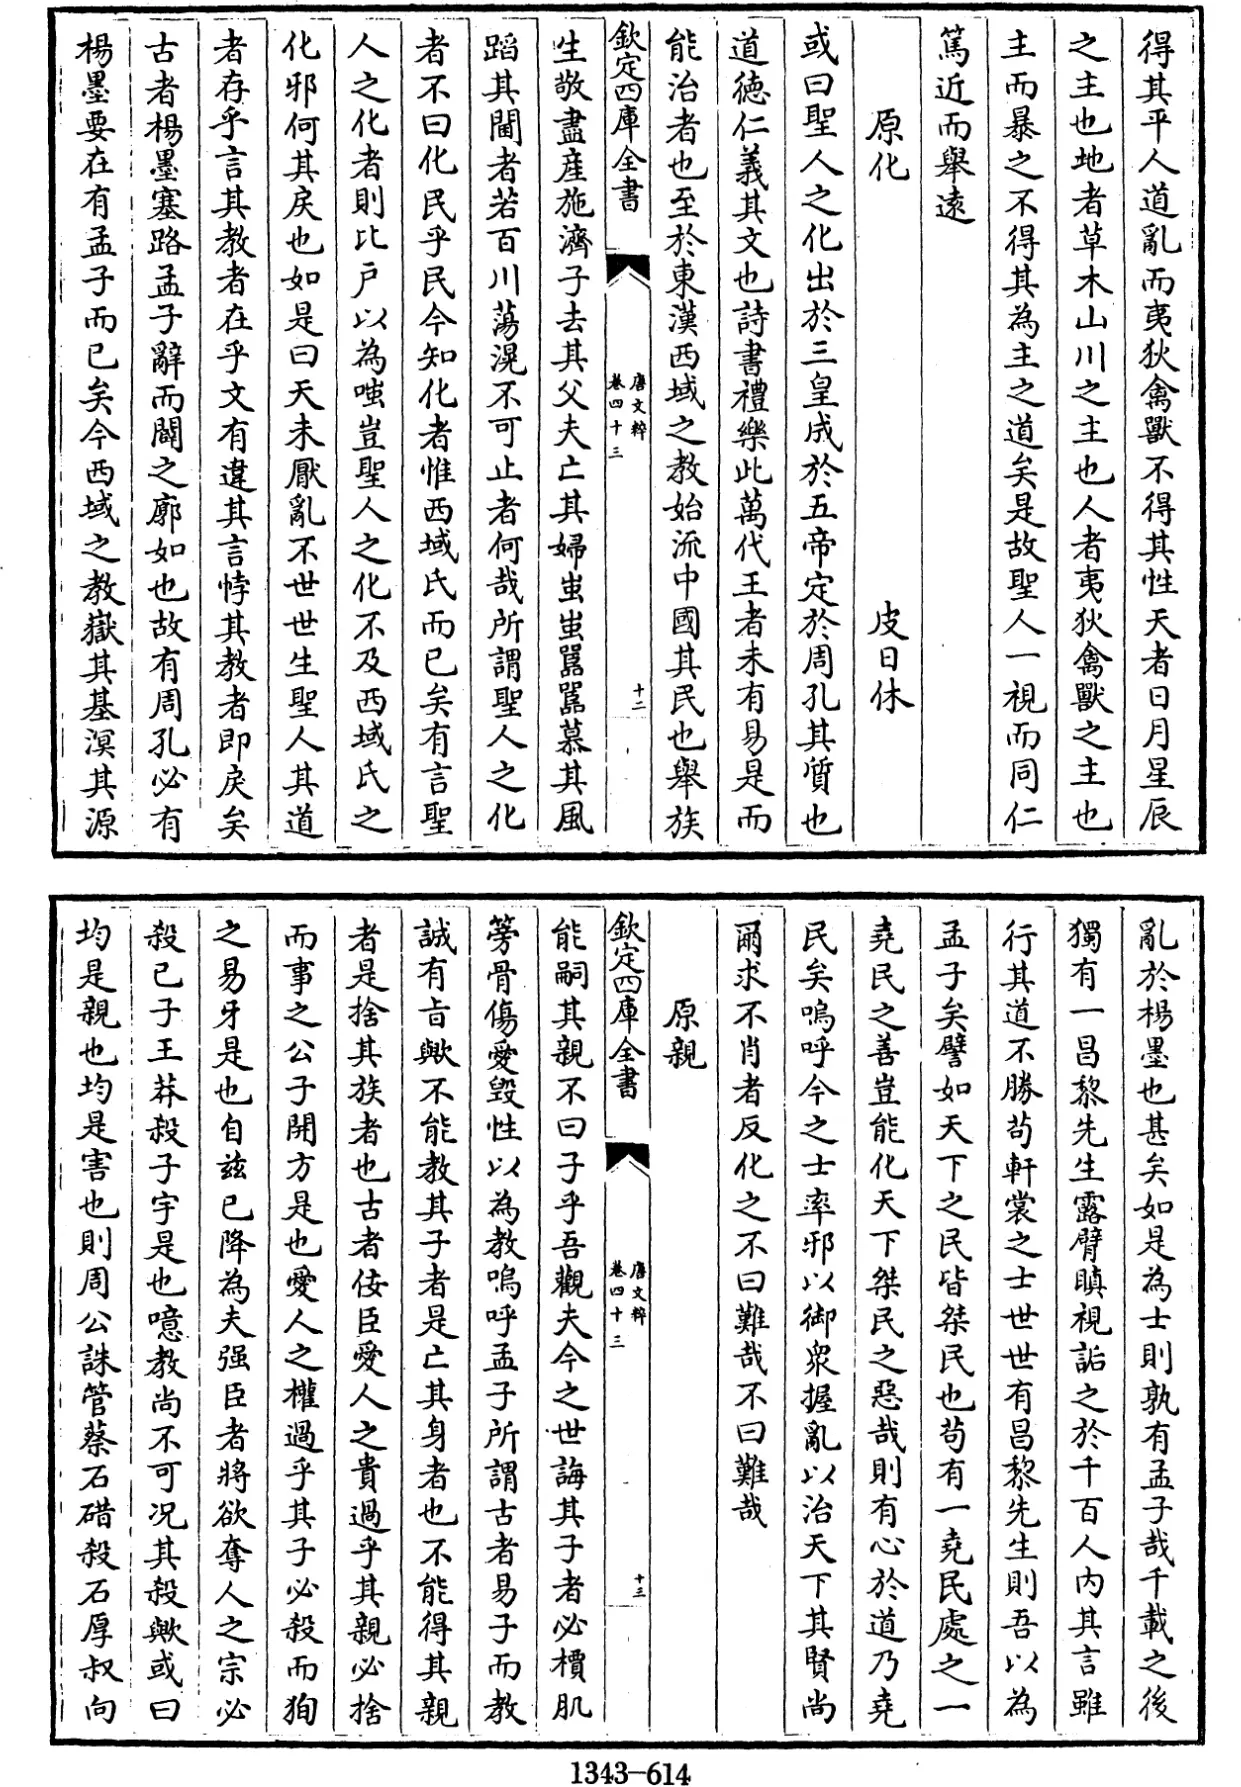 得其平人道亂而夷狄禽獸不得其性天者日月星辰
之主也地者草木山川之主也人者夷狄禽獸之主也
主而暴之不得其為主之道矣是故聖人一視而同仁
篤近而舉遠
原化 皮日休
或曰聖人之化出於三皇成於五帝定於周孔其質也
道德仁義其文也詩書禮樂此萬代王者未有易是而
能治者也至於東漢西域之教始流中國其民也舉族
欽定四庫全書 唐文粹 卷四十三 十二
生敬盡産施濟子去其父夫亡其婦蚩蚩嚚嚚慕其風
蹈其閫者若百川蕩滉不可止者何哉所謂聖人之化
者不曰化民乎民今知化者惟西域氏而已矣有言聖
人之化者則比户以為嗤豈聖人之化不及西域氏之
化邪何其戾也如是曰天未厭亂不世世生聖人其道
者存乎言其教者在乎文有違其言悖其教者即戾矣
古者楊墨塞路孟子辭而闢之廓如也故有周孔必有
楊墨要在有孟子而已矣今西域之教嶽其基溟其源
亂於楊墨也甚矣如是為士則孰有孟子哉千載之後
獨有一昌黎先生露臂瞋視詬之於千百人内其言雖
行其道不勝苟軒裳之士世世有昌黎先生則吾以為
孟子矣譬如天下之民皆桀民也苟有一堯民處之一
堯民之善豈能化天下桀民之惡哉則有心於道乃堯
民矣嗚呼今之士率邪以御衆握亂以治天下其賢尚
爾求不肖者反化之不曰難哉不曰難哉
原親
欽定四庫全書 唐文粹 卷四十三 十三
能嗣其親不曰子乎吾觀夫今之世誨其子者必櫝肌
篣骨傷愛毁性以為教嗚呼孟子所謂古者易子而教
誠有旨歟不能教其子者是亡其身者也不能得其親
者是捨其族者也古者佞臣愛人之貴過乎其親必捨
而事之公子開方是也愛人之權過乎其子必殺而狥
之易牙是也自兹已降為夫强臣者將欲奪人之宗必
殺已子王莽殺子宇是也噫教尚不可况其殺歟或曰
均是親也均是害也則周公誅管蔡石碏殺石厚叔向
1343-614